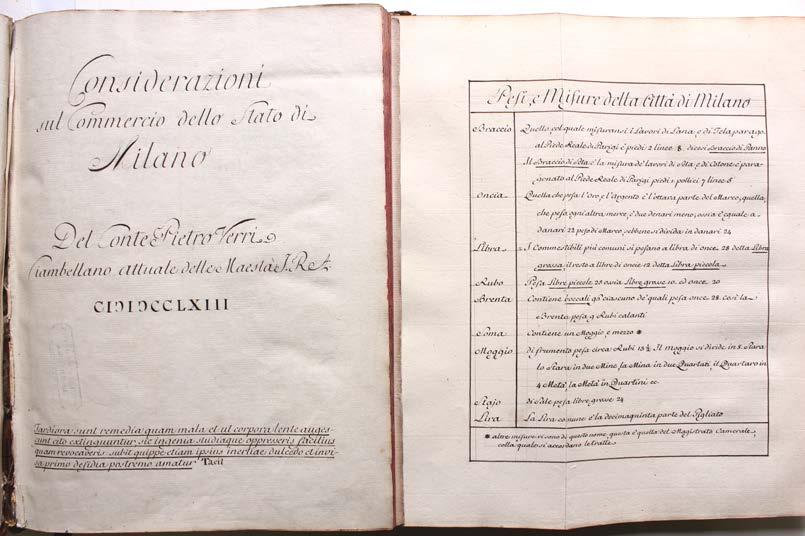 Considerazioni
sul Commercio dello Stato di
Milano
Del Conte Pietro Verri
Ciambellano attuale delle Maestà I. R. A.
CIƆIƆCCLXIII
Tardiora sunt remedia quam mala et ut corpora lente auges-
cunt cito extinguuntur, sic ingenia studiaque oppresseris facilius
quam revocaveris subit quippe etiam ipsius inertiae dulcedo et invi-
sa primo desidia postremo amatur Tacit
Pesi, e Misure della Città di Milano
Braccio Quello col quale misuransi i Lavori di Lana, e di Tela parago.
al Piede Reale di Parigi è piedi 2 linee 8. dicesi Braccio di Panno
Il Braccio di Seta è la misura de' lavori di Seta, e di Cotone è para-
gonato al Piede Reale di Parigi piedi 1. pollici 7 linee 5
Oncia Quella che pesa l'Oro, e l'Argento è l'ottava parte del Marco, quella,
che pesa ogni altra merce, è due denari meno, ossia è eguale a
danari 22 peso di Marco, sebbene si divida in danari 24
Libra I Commestibili più comuni si pesano a libra di once 28 detta Libra
grossa, il resto a libre di oncie 12 detta Libra piccola
Rubo Pesa Libre piccole 25 ossia Libre grave 10. ed once 20
Brenta Contiene boccali 96 ciascuno de' quali pesa once 28. così la
Brenta pesa 9 Rubi calanti
Soma Contiene un Moggio, e mezzo *
Moggio di frumento pesa circa Rubi 13 ½ Il moggio si divide in 8. Stara
lo Staro in due Mine, la Mina in due Quartari, il Quartaro in
4 Metà, la Metà in Quartini ec.
Stajo di Sale pesa libre grave 24
Lira La Lira comune è la decimaquinta parte del Filippo
* altre misure vi sono di questo nome, questa è quella del Magistrato Camerale,
colla quale si accordano le tratte